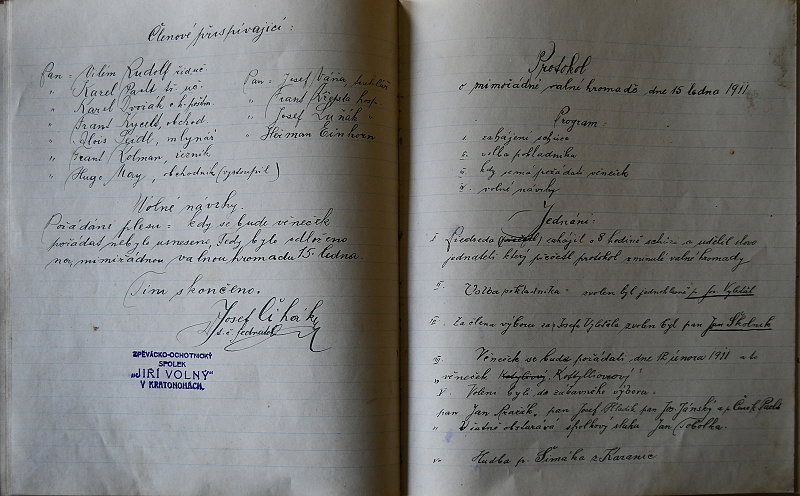 Členové přispívající:
Pan: Vilém Rudolf řed. uč.
" Karel Pardt
" Karel Dvořák
" Frant. Kycelt, obchod.
" Alois Feidl, mlynář
" Frant. Kolman, řezník
" Hugo May, obchodník (vystoupil)
Pan: Josef Váňa,
" Frant. Křepela hosp.
" Josef Luňák "
" Heřman Einhorn
Volné návrhy.
Pořádání plesu: kdy se bude věneček
pořádat nebylo usneseno, tedy bylo odloženo
na mimořádnou valnou hromadu 15. ledna.
Tím skončeno.
Josef Cihák
t. č. jednatel
ZPĚVÁCKO-OCHOTNICKÝ
SPOLEK
„JIŘÍ VOLNÝ"
V KRATONOHÁCH.
Protokol
o mimořádné valné hromadě dne 15 ledna 1911.
Program:
I. zahájení schůze
II. volba pokladníka
III. kdy se má pořádati věneček
IV. volné návrhy
Jednání:
I Předseda zahájil o 8 hodině schůzi a udělil slovo
jednateli který přečetl protokol z minulé valné hromady
II. Volba pokladníka: zvolen byl jednohlasně p. Jos. Vyletăl
IV. Za člena výboru za Josefa Vyletala zvolen byl pan Jan Školník
III. Věneček se bude pořádati dne 12 února 1911 a to
„věneček Kotyllionový"
V. Voleni byli do zábavního výboru.
pan Jan pan Josef Hlavík pan Jos. Jánský a p. Čeněk
" obstarává spolkový sluha Jan Sobotka.
V. Hudba p. Šimáka z Karanic